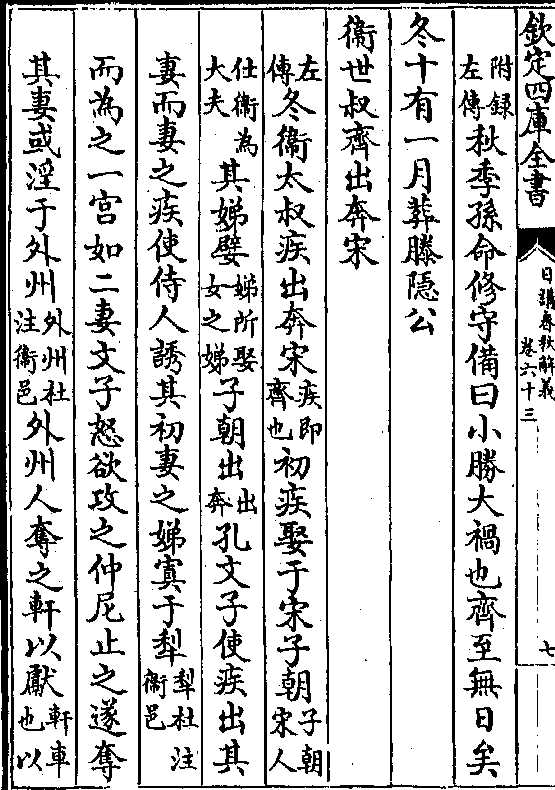 欽定四庫全書
日講春秋解義
卷六十三
七
附録左傳秋季孫命修守備曰小勝大禍也齊至無日矣
冬十有一月葬滕隱公
衞世叔齊出奔宋
左傳冬衞太叔疾出奔宋疾即齊也初疾娶于宋子朝子朝宋人
仕衞為大夫其娣嬖娣所娶女之娣子朝出出奔孔文子使疾出其
妻而妻之疾使侍人誘其初妻之娣寘于犁犁杜注衞邑
而為之一宫如二妻文子怒欲攻之仲尼止之遂奪
其妻或淫于外州外州杜注衞邑外州人奪之軒以獻軒車也以